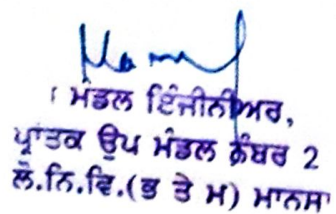 ਮੰਡਲ ਇੰਜੀਨੀਅਰ,
ਪ੍ਰਾਂਤਕ ਉਪ ਮੰਡਲ ਨੰਬਰ 2
ਲੋ.ਨਿ.ਵਿ.(ਭ ਤੇ ਮ) ਮਾਨਸਾ